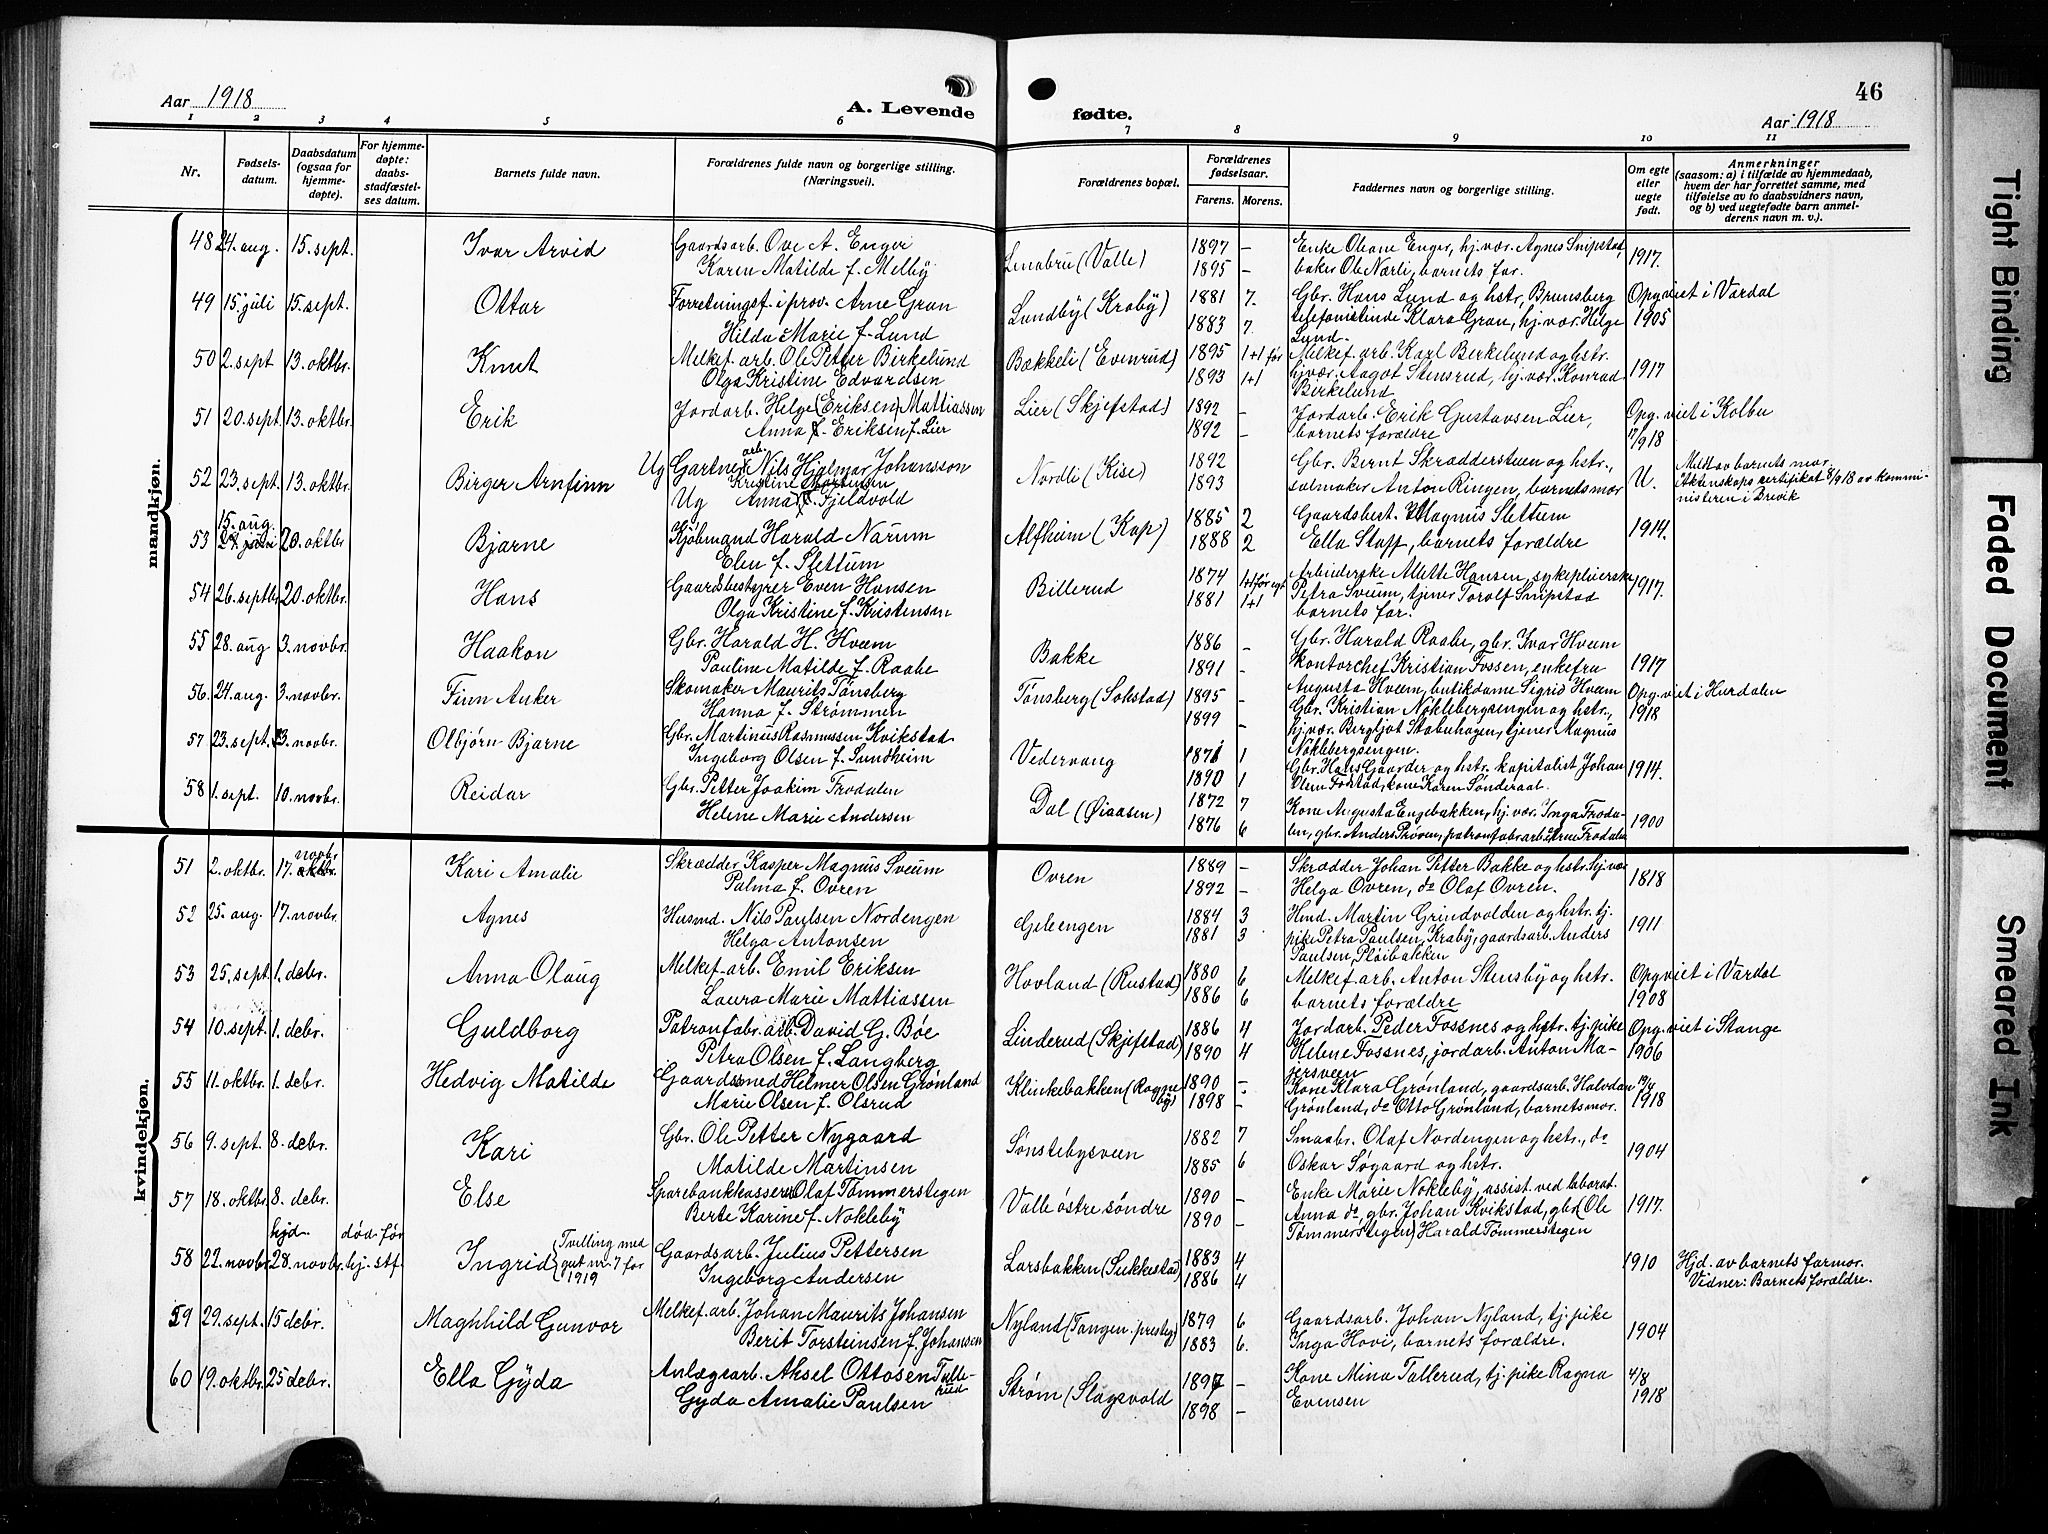 46
Aar 1918
A. Levende
fødte.
Aar 1918
1 2 3 4 5 6 7 8 9 10 11
Nr.
Fødsels-
datum.
Daabsdatum
(ogsaa for
hjemme-
døpte).
For hjemme-
døpte:
daabs-
stadfæstel-
ses datum.
Barnets fulde navn.
Forældrenes fulde navn og borgerlige stilling.
(Næringsvei).
Forældrenes bopæl.
Forældrenes
fødselsaar.
Farens. Morens.
Faddernes navn og borgerlige stilling.
Om egte
eller
uegte
født.
Anmerkninger
(saasom: a) i tilfælde av hjemmedaab,
hvem der har forrettet samme, med
tilføielse av to daabsvidners navn,
og b) ved uegtefødte barn anmel-
derens navn m. v.).
mandkjøn.
48 24. aug. 15. sept. Ivar Arvid Gaardsarb. Ove A. Enger Lenabru (Valle) 1897 - Enke Oleane Enger, hj. vær. Agnes Snipstad, 1917.
Karen Matilde f. Melby 1895 - baker Ole Nærli, barnets far.
49 15. juli 15. sept. Ottar Forretningsf. i prov. Arne Gran Lundby (Kraby) 1881 7. Gbr. Hans Lund og hstr., Brunsberg Opg. viet i Vardal
Hilda Marie f. Lund 1883 7. telefonistinde Klara Gran, hj. vær. Helge 1905
Lund.
50 2. sept 13. oktbr. Knut Melkef. arb. Ole Petter Birkelund Bakkeli (Evenrud) 1895 1+1 før Melkef. arb. Karl Birkelund og hstr. 1917
Olga Kristine Edvardsen 1893 1+1 hj. vær. Aagot Stensrud, hj. vær. Konrad
Birkelund
51 20. sept. 13. oktbr. Erik Jordarb. Helge (Eriksen) Mattiassen Lier (Skjefstad) 1892 - Jordarb. Erik Gustavsen Lier, Opg. viet i Kolbu
Anna f. Eriksen f. Lier 1892 - barnets forældre 17/9 18
52 23. sept. 13. oktbr. Birger Arnfinn Ug Gartner arb. Nils Hjalmar Johansson Nordli (Kise) 1892 Gbr. Bernt Skrædderstuen og hstr., U. Meldt av barnets mor.
Kristine Mortensen
Ug Anna f. Fjeldvold 1893 salmaker Anton Ringen, barnets mor Ekteskaps certifikat 8/9 18 av kommi-
nisteren i Brevik
15. aug.
53 20. oktbr Bjarne Kjøbmand Harald Narum Alfheim (Kap) 1885 2 Gaardsbest. Magnus Slettum 1914.
Elen f. Slettum 1888 2 Ella Stapp, barnets forældre
54 26. septbr 20. oktbr. Hans Gaardsbestyrer Even Hansen Billerud 1874 1+1 før egt. Arbeiderske Alette Hansen, sykepleierske 1917.
Olga Kristine f. Kristensen 1881 1+1 Petra Sveum, tjener Torolf Snipstad
barnets far.
55 28. aug 3. novbr. Haakon Gbr. Harald H. Hveem Bakke 1886 - Gbr. Harald Raabe, gbr. Ivar Hveem
Pauline Matilde f. Raabe 1891 - kontorchef Kristian Fossen, enkefru 1917
Augusta Hveem, butikdame Sigrid Hveem
56. 24. aug. 3. novbr. Finn Anker Skomaker Maurits Tønsberg Tønsberg (Sokstad) 1895 - Gbr. Kristian Nøklebergsengen og hstr., Opg. viet i Hurdalen
Hanna f. Strømmen 1899 - hj. vær. Bergljot Stabuhagen, tjener Magnus 1918
Nøklebergsengen.
57 23. sept. 3. novbr. Olbjørn Bjarne Gbr. Martinus Rasmussen Kvikstad Vedervang 1871 1 Gbr. Hans Gaarder og hstr. kapitalist Johan 1914.
Ingeborg Olsen f. Sundheim 1890 1 Olsen Fodstad, kone Karen Sønderaal.
58 1. sept. 10. novbr. Reidar Gbr. Petter Joakim Frodalen Dal (Øiaasen) 1872 7 Kone Augusta Engebakken, hj. vær. Inga Froda- 1900
Helene Marie Andersen 1876 6 len, gbr. Anders Prøven, patronfabrarb. Arne Frodalen
kvindekjøn.
51 2. oktbr. 17. novbr Kari Amalie Skrædder Kasper Magnus Sveum Ovren 1889 - Skrædder Johan Petter Bakke og hstr. hj. vær 1818
Palma f. Ovren 1892 - Helga Ovren, do Olaf Ovren.
52 25. aug. 17. novbr. Agnes Husmd. Nils Paulsen Nordengen Geleengen 1884 3 Hmd. Martin Grindvolden og hstr. tj. 1911
Helga Antonsen 1881 3 pike Petra Paulsen, Kraby, gaardsarb. Anders
Paulsen, Pløibakken
53 25. sept 1. debr. Anna Olaug Melkef. arb. Emil Eriksen Hovland (Rustad) 1880 6 Melkef. arb. Anton Stensby og hstr. Opg. viet i Vardal
Laura Marie Mattiassen 1886 6 barnets forældre 1908
54 10. sept. 1. debr. Guldborg Patronfabr. arb. David G. Bøe Linderud (Skjefstad) 1886 4 Jordarb. Peder Fossnes og hstr. tj. pike Opg. viet i Stange
Petra Olsen f. Langberg 1890 4 Helene Fossnes, jordarb. Anton Ma- 1906
jersveen
55 11. oktbr. 1. debr. Hedvig Matilde Gaardssmed Helmer Olsen Grønland Klinkebakken (Ragne- 1890 - Kone Klara Grønland, gaardsarb. Halvdan 19/4
Marie Olsen f. Olsrud by) 1898 - Grønland, do Otto Grønland, barnets mor. 1918
56 9. sept. 8. debr. Kari Gbr. Ole Petter Nygaard Sønstebysveen 1882 7 Smaabr. Olaf Nordengen og hstr., do 1904
Matilde Martinsen 1885 6 Oskar Søgaard og hstr.
57 18. oktbr 8. debr. Else Sparebankkasserer Olaf Tømmerstegen Valle østre søndre 1890 - Enke Marie Nøkleby, assist. ved laborat. 1917.
Berte Karine f. Nøkleby 1890 - Anna do gbr. Johan Kvikstad, gbr. (Ole
Tømmerstegen) Harald Tømmerstegen
hjd. død før
58 22. novbr 28. novbr. hj. stf. Ingrid (Tvilling med Gaardsarb. Julius Pettersen Larsbakken (Sukkestad) 1883 4 1910 Hjd. av barnets farmor.
gut nr. 7 for Ingeborg Andersen 1886 4 Vidner: Barnets forældre.
1919
59 29. sept. 15 debr. Maghhild Gunvor Melkef. arb. Johan Maurits Johansen Nyland (Tangen. presteg) 1879 6 Gaardsarb. Johan Nyland, tj. pike 1904
Berit Torsteinsen f. Johansen 1883 6. Inga Hovi, barnets forældre.
60 19. oktbr. 25 debr. Ella Gyda Anlægsarb. Aksel Ottosen Talle- Strøm (Slagsvold 1897 - Kone Mina Tallerud, tj. pike Ragna 4/8
rud
Gyda Amalie Paulsen 1898 - Evensen 1918
Tight Binding
Faded Document
Smeared Ink